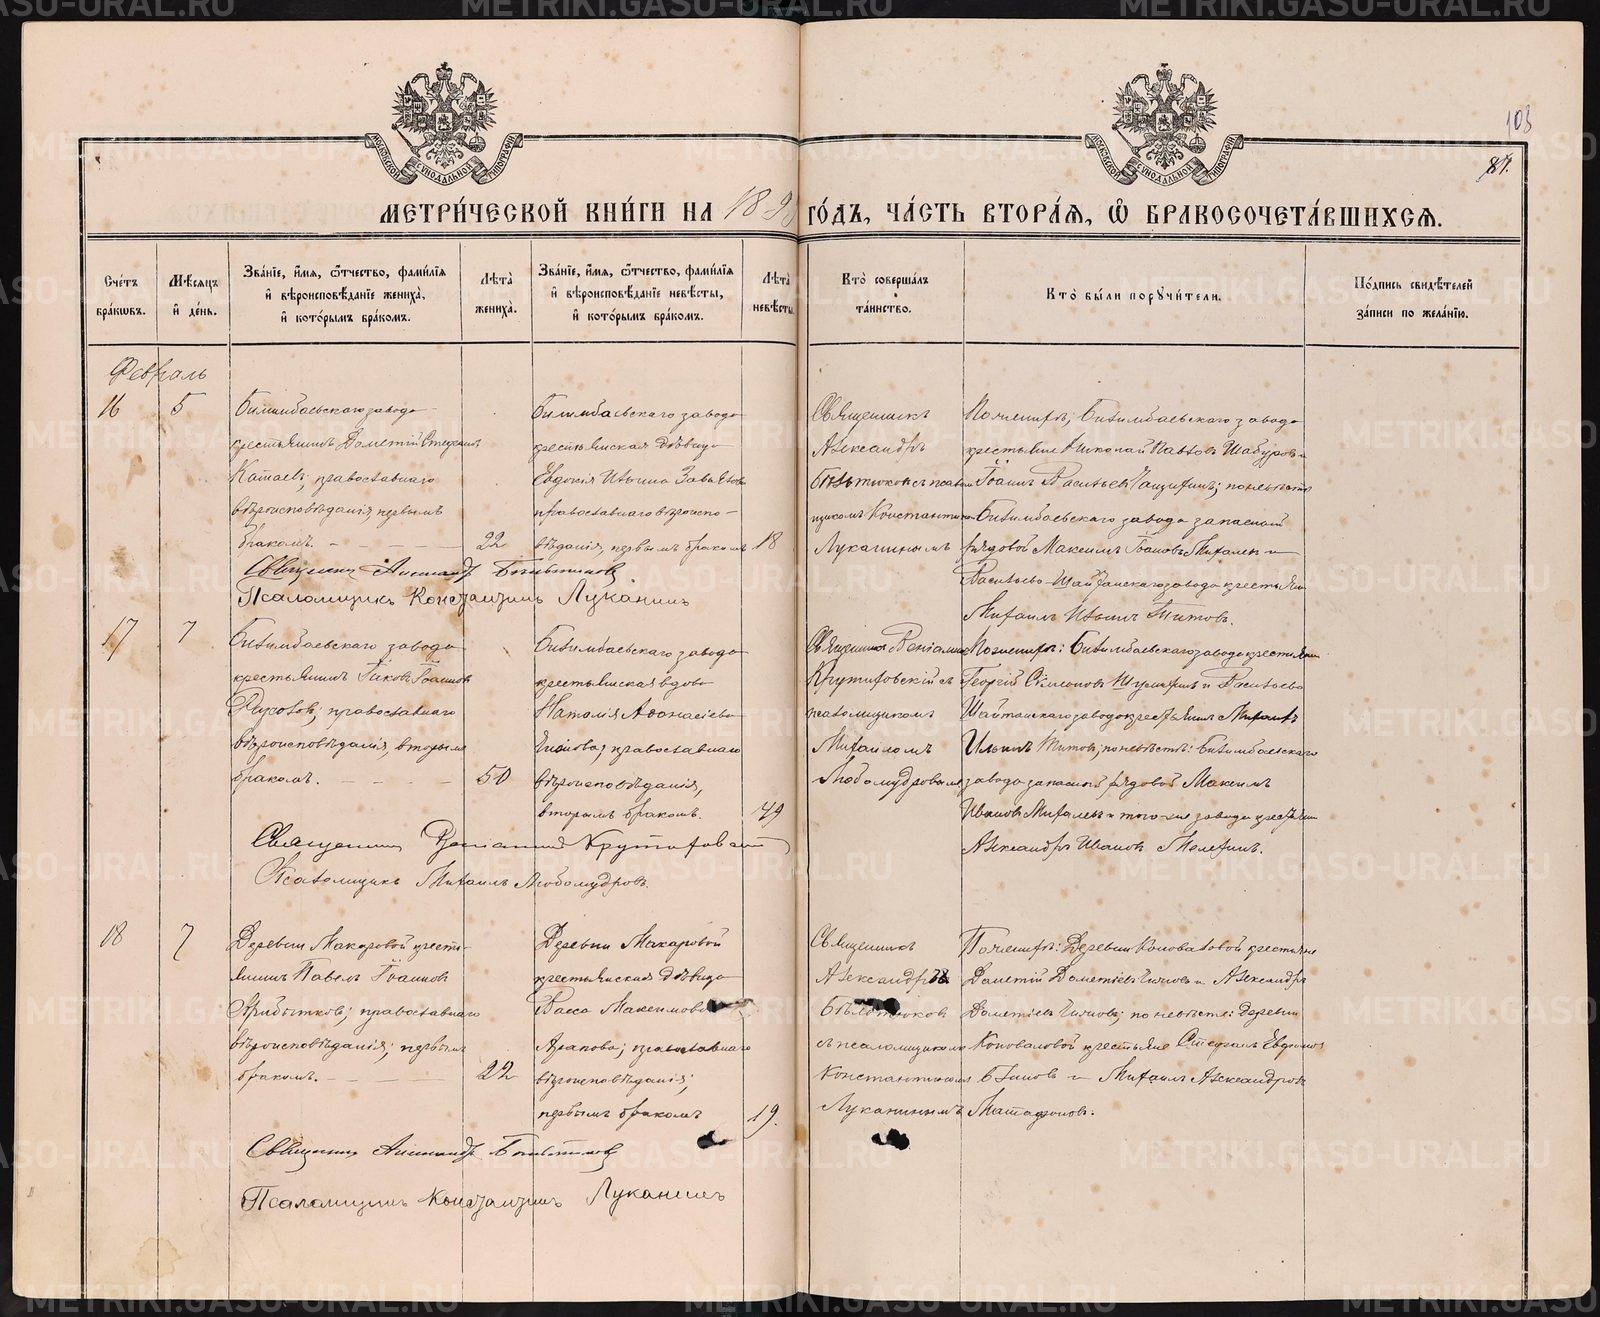 103
87.
МОСКОВСКОЙ СѴНОДАЛЬНОЙ ТИПОГРАФІИ
МОСКОВСКОЙ СѴНОДАЛЬНОЙ ТИПОГРАФІИ
МЕТРИ́ЧЕСКОЙ КНИ́ГИ НА 189 ГО́ДЪ, ЧА́СТЬ ВТОРА́Я, Ѽ БРАКОСОЧЕТА́ВШИХСЯ.
Сче́тъ бра́кѡвъ.
Мѣ́сяцъ и́ де́нь.
Зва́нїе, и́мя, ѻ҆́тчество, фами́лїя и҆ вѣроисповѣ́данїе жениха̀, и҆ кото́рымъ бра́комъ.
Лѣта̀ жениха̀.
Зва́нїе, и́мя, ѻ҆́тчество, фами́лїя и҆ вѣроисповѣ́данїе невѣ́сты, и҆ кото́рымъ бра́комъ.
Лѣта̀ невѣ́сты.
Кто̀ соверша́лъ та́инство.
Кто̀ бы́ли порꙋчи́тели.
По́дпись свидѣ́телей за́писи по жела́нїю.
Февраль
16
5
Билимбаевскаго завода
крестьянинъ Дометій Стефановъ
Катаевъ, православнаго
вѣроисповѣданія, первымъ
бракомъ.
22
Билимбаевскаго завода
крестьянская дѣвица
Евдокія Ивановна
православнаго вѣроиспо-
вѣданія, первымъ бракомъ
18
Священникъ
Александръ
Бѣльтюковъ съ псалом
щикомъ Константиномъ
Луканинымъ
По женихѣ; Билимбаевскаго завода
крестьяне Николай Павловъ Шабуровъ и
Іоаннъ Васильевъ; по невѣстѣ
Билимбаевскаго завода запасной
рядовой Максимъ Іоанновъ Михалевъ и
Васильево-Шайтанскаго завода крестьянинъ
Михаилъ Ильинъ Титовъ.
Священникъ Александръ Бѣльтюковъ
Псаломщикъ Константинъ Луканинъ
17
7
Билимбаевскаго завода
крестьянинъ Іаковъ Іоанновъ
православнаго
вѣроисповѣданія, вторымъ
бракомъ.
50
Билимбаевскаго завода
крестьянская вдова
Наталія Аѳонасіева
православнаго
вѣроисповѣданія,
вторымъ бракомъ.
49
Священникъ Веніаминъ
Крутиховскій съ
псаломщикомъ
Михаиломъ
Любомудровымъ
По женихѣ: Билимбаевскаго завода крестьянинъ
Георгій Симеоновъ и Васильево
Шайтанскаго завода крестьянинъ Михаилъ
Ильинъ Титовъ; по невѣстѣ: Билимбаевскаго
завода запасной рядовой Максимъ
Ивановъ Михалевъ и того-же завода крестьянинъ
Александръ Ивановъ Мелехинъ.
Священникъ Веніаминъ Крутиховскій
Псаломщикъ Михаилъ Любомудровъ.
18
7
Деревни Макаровой кресть-
янинъ Павелъ Іоанновъ
Прибытковъ; православнаго
вѣроисповѣданія; первымъ
бракомъ.
22
Деревни Макаровой
крестьянская дѣвица
Васса Максимова
Арапова; православнаго
вѣроисповѣданія;
первымъ бракомъ
19.
Священникъ
Александръ
Бѣльтюковъ
съ псаломщикомъ
Константиномъ
Луканинымъ
По женихѣ: Деревни Коноваловой крестьяне
Дометій Дометіевъ и Александръ
Дометіевъ; по невѣстѣ: деревни
Коноваловой крестьяне Стефанъ Евдокимовъ
и Михаилъ Александровъ
Матафоновъ.
Священникъ Александръ Бѣльтюковъ
Псаломщикъ Константинъ Луканинъ
METRIKI.GASO-URAL.RU